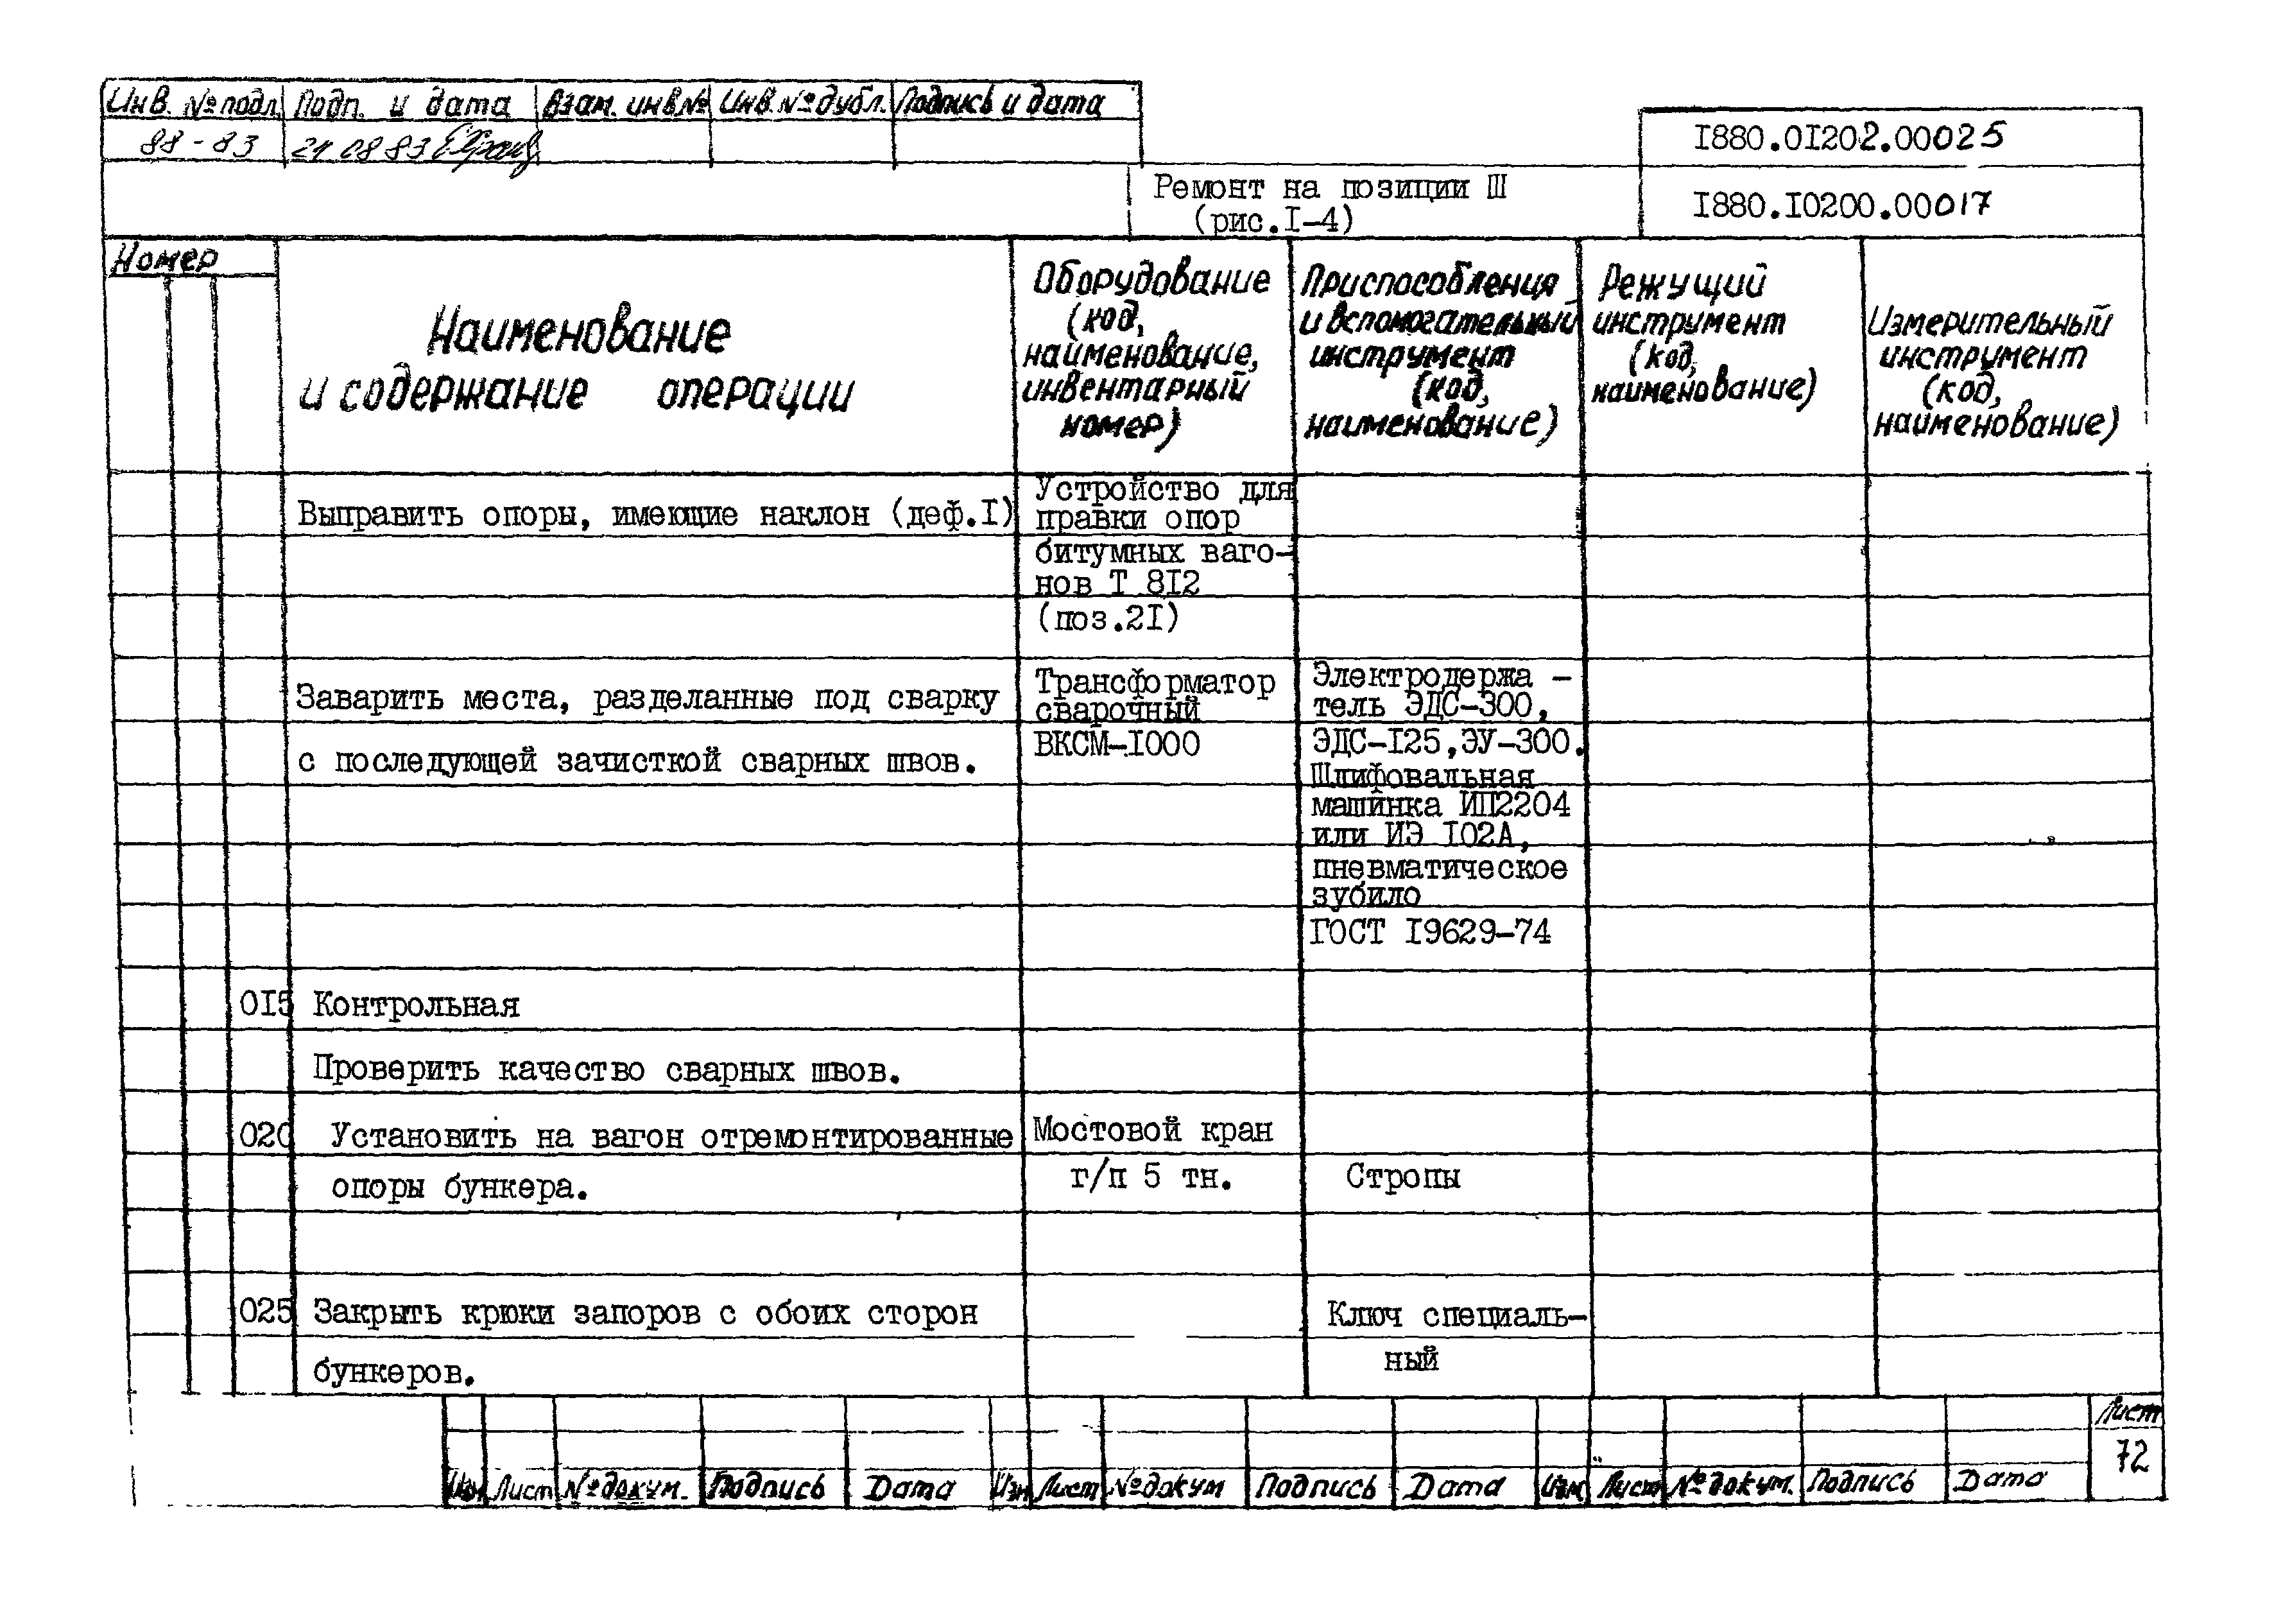 Инв. № подл. Подп. и дата Взам. инв.№ Инв.№ дубл. Подпись и дата
88-83 08 83
I880.0I202.00025
Ремонт на позиции Ш
(рис.I-4)
I880.I0200.00017
Номер
Наименование
и содержание операции
Оборудование
(код,
наименование,
инвентарный
номер)
Приспособления
и вспомогательный
инструмент
(код,
наименование)
Режущий
инструмент
(код,
наименование)
Измерительный
инструмент
(код,
наименование)
Выправить опоры, имеющие наклон (деф.I)
Устройство для
правки опор
битумных ваго-
нов Т 8I2
(поз.2I)
Заварить места, разделанные под сварку
с последующей зачисткой сварных швов.
Трансформатор
сварочный
ВКСМ-I000
Электродержа -
тель ЭДС-300,
ЭДС-I25,ЭУ-300.
Шлифовальная
машинка ИП2204
или ИЭ I02А,
пневматическое
зубило
ГОСТ I9629-74
0I5 Контрольная
Проверить качество сварных швов.
020 Установить на вагон отремонтированные
опоры бункера.
Мостовой кран
г/п 5 тн.
Стропы
025 Закрыть крюки запоров с обоих сторон
бункеров.
Ключ специаль-
ный
Лист
72
Изм Лист № докум. Подпись Дата Изм Лист № докум Подпись Дата Изм Лист № докум. Подпись Дата